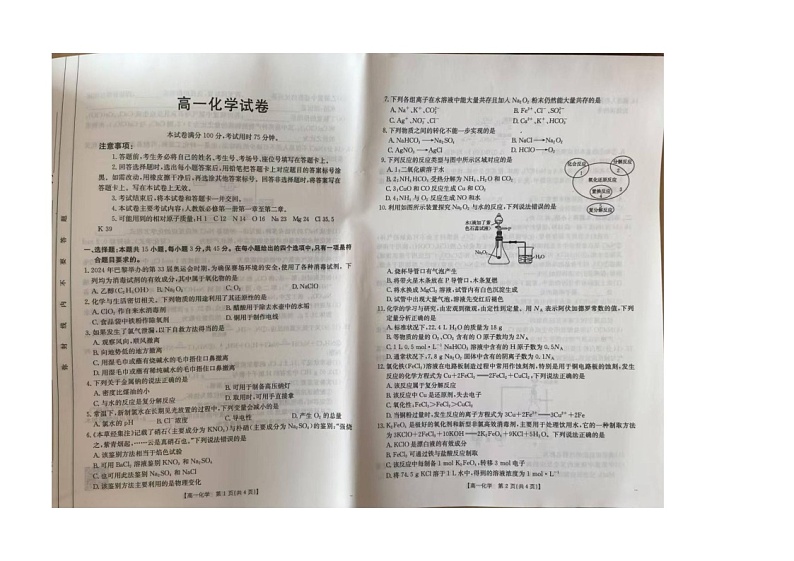 高一化学试卷
本试卷满分100分,考试用时75分钟。
注意事项:
1.答题前,考生务必将自己的姓名、考生号、考场号、座位号填写在答题卡上。
2.回答选择题时,选出每小题答案后,用铅笔把答题卡上对应题目的答案标号涂
黑。如需改动,用橡皮擦干净后,再选涂其他答案标号。回答非选择题时,将答案写在
答题卡上。写在本试卷上无效。
3.考试结束后,将本试卷和答题卡一并交回。
4.本试卷主要考试内容:人教版必修第一册第一章至第二章。
5.可能用到的相对原子质量:H 1 C 12 N 14 O 16 Na 23 Mg 24 Cl 35.5
K 39
一、选择题:本题共15小题,每小题3分,共45分。在每小题给出的四个选项中,只有一项是符
合题目要求的。
1.2024年巴黎举办的第33届奥运会时期,为确保赛场环境的安全,使用了各种消毒试剂。下
列均为消毒试剂的有效成分,其中属于氧化物的是
A.乙醇(C₂H₅OH) B.Na₂O₂ C.O₂ D.NaClO
2.化学与生活密切相关。下列物质的用途利用了其还原性的是
A.ClO₂作自来水消毒剂 B.醋酸用于除去水壶中的水垢
C.食品袋中铁粉作除氧剂 D.铜用于制作电线
3.如果发生了氯气泄漏,以下自救方法得当的是
A.观察风向,顺风撤离
B.向地势低的地方撤离
C.用湿毛巾或蘸有烧碱水的毛巾捂住口鼻撤离
D.用湿毛巾或蘸有稀纯碱水的毛巾捂住口鼻撤离
4.下列关于金属钠的说法正确的是
A.密度比煤油的小 B.可用于制备高压钠灯
C.与水的反应是复分解反应 D.取用时,可用手直接拿
5.常温下,新制氯水在长期见光放置的过程中,下列变量会减小的是
A.氯水的pH B.Cl⁻浓度 C.导电性 D.产生O₂的总量
6.《本草经集注》记载了硝石(主要成分为KNO₃)与朴硝(主要成分为Na₂SO₄)的鉴别:“强烧
之,紫青烟起,……云是真硝石也。”下列说法错误的是
A.该鉴别方法相当于焰色试验
B.可用BaCl₂溶液鉴别KNO₃和Na₂SO₄
C.也可用此法鉴别Na₂SO₄和NaCl
D.该鉴别方法主要利用的是物理变化
【高一化学 第1页(共4页)】
7.下列各组离子在水溶液中能大量共存且加入Na₂O₂粉末仍然能大量共存的是
A.Na⁺、K⁺、CO₃²⁻ B.Fe²⁺、Cl⁻、SO₄²⁻
C.Ag⁺、NO₃⁻、Cl⁻ D.Ca²⁺、K⁺、HCO₃⁻
8.下列物质之间的转化不能一步实现的是
A.NaHCO₃→Na₂CO₃ B.NaCl→Na₂O₂
C.AgNO₃→AgCl D.HClO→O₂
9.下列反应的反应类型与图中所示区域对应的是
化合反应
分解反应
氧化还原反应
置换反应
复分解反应
A.1,二氧化碳溶于水
B.2,NH₄HCO₃受热分解为NH₃、H₂O和CO₂
C.3,CuO和CO反应生成Cu和CO₂
D.4,NH₃与O₂反应生成NO和水
10.利用如图所示装置探究Na₂O₂与水的反应,下列说法错误的是
水(滴加了紫
色石蕊试液)
Na₂O₂
H₂O
A.烧杯导管口有气泡产生
B.将带火星木条放在P导管口,木条复燃
C.将水换成MgCl₂溶液,试管内有白色沉淀生成
D.试管中出现大量气泡,溶液先变红后褪色
11.化学的学习与研究,由宏观到微观,由定性到定量。用N_A表示阿伏加德罗常数的值,下列
定量分析正确的是
A.标准状况下,22.4 L H₂O的质量为18 g
B.等物质的量的O₂、CO₂含有的O原子数均为2N_A
C.1 L 0.5 mol·L⁻¹ NaHCO₃溶液中含有的H原子数为0.5N_A
D.通常状况下,7.8 g Na₂O₂固体中含有的阴离子数为0.1N_A
12.氯化铁(FeCl₃)溶液在电路板制造过程中常用作蚀刻剂,特别是用于铜电路板的蚀刻,发生
反应的化学方程式为Cu+2FeCl₃=2FeCl₂+CuCl₂。下列说法正确的是
A.该反应属于复分解反应
B.该反应中Cu是还原剂,失去电子
C.氧化性:FeCl₂>FeCl₃>CuCl₂
D.当铜粉过量时,发生反应的离子方程式为3Cu+2Fe³⁺=3Cu²⁺+2Fe
13.K₂FeO₄是极好的氧化剂和新型非氯高效消毒剂,主要用于处理饮用水,它的一种制取方法
为3KClO+2FeCl₃+10KOH=2K₂FeO₄+9KCl+5H₂O。下列说法正确的是
A.KClO是漂白液的有效成分
B.FeCl₃可通过铁与盐酸反应制取
C.该反应中每制备1 mol K₂FeO₄,转移3 mol电子
D.将74.5 g KCl溶于1 L水中,得到的溶液浓度为1 mol·L⁻¹
【高一化学 第2页(共4页)】